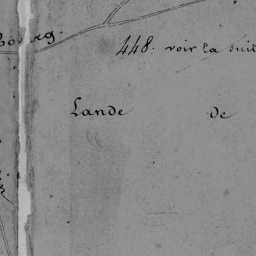 448. voir la suit
Lande de